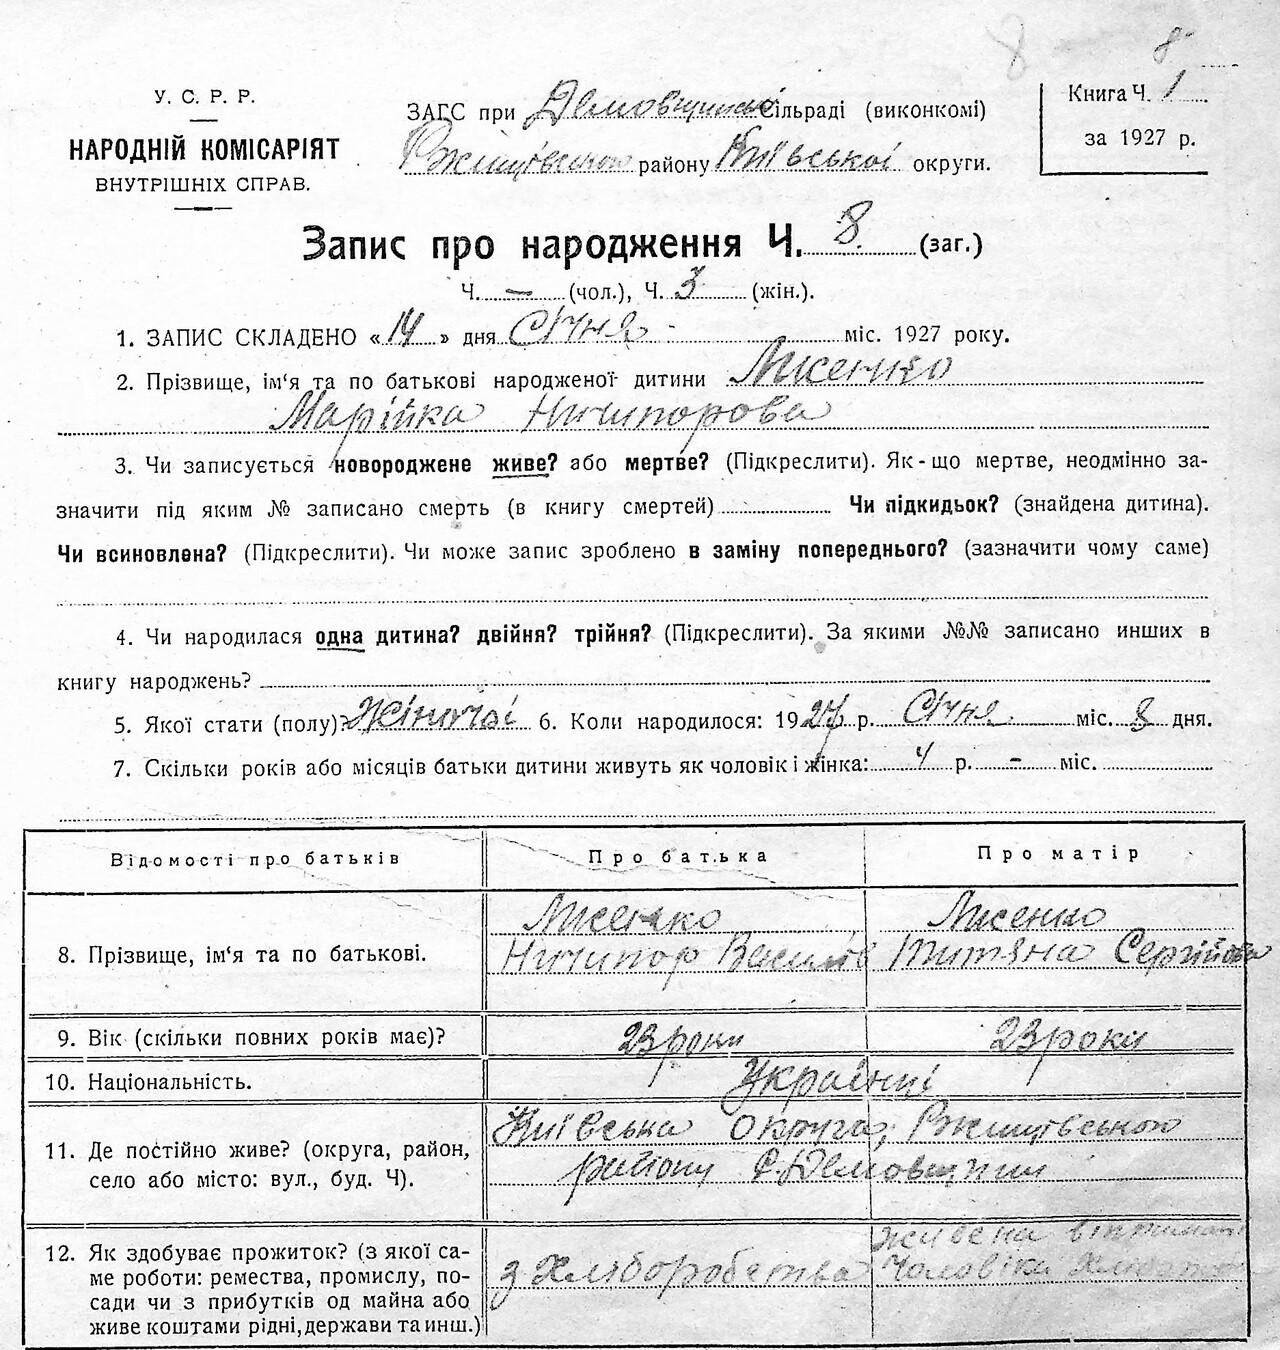 8 8
У. С. Р. Р.
НАРОДНІЙ КОМІСАРІЯТ
ВНУТРІШНІХ СПРАВ.
ЗАГС при Демовщинськ сільраді (виконкомі)
Ржищівського району Київської округи.
Книга Ч. 1
за 1927 р.
Запис про народження Ч. 8 (заг.)
Ч. — (чол.), Ч. 3 (жін.).
1. ЗАПИС СКЛАДЕНО «14» дня Січня міс. 1927 року.
2. Прізвище, ім‘я та по батькові народженої дитини Лисенко
Марійка Ничипорова
3. Чи записується новороджене живе? або мертве? (Підкреслити). Як-що мертве, неодмінно за-
значити під яким № записано смерть (в книгу смертей) Чи підкидьок? (знайдена дитина).
Чи всиновлена? (Підкреслити). Чи може запис зроблено в заміну попереднього? (зазначити чому саме)
4. Чи народилася одна дитина? двійня? трійня? (Підкреслити). За якими №№ записано инших в
книгу народжень?
5. Якої стати (полу)? Жіночої 6. Коли народилося: 1927 р. Січня міс. 8 дня.
7. Скільки років або місяців батьки дитини живуть як чоловік і жінка: 4 р. - міс.
Відомості про батьків Про батька Про матір
8. Прізвище, ім‘я та по батькові.
Лисенко
Ничипор Василів
Лисенко
Титяна Сергійова
9. Вік (скільки повних років має)? 23 роки 23 роки
10. Національність. Українці
11. Де постійно живе? (округа, район,
село або місто: вул., буд. Ч).
Київська округа, Ржищівського
району с. Демовщини
12. Як здобуває прожиток? (з якої са-
ме роботи: ремества, промислу, по-
сади чи з прибутків од майна або
живе коштами рідні, держави та инш.)
з хліборобства
живе на
чоловіка